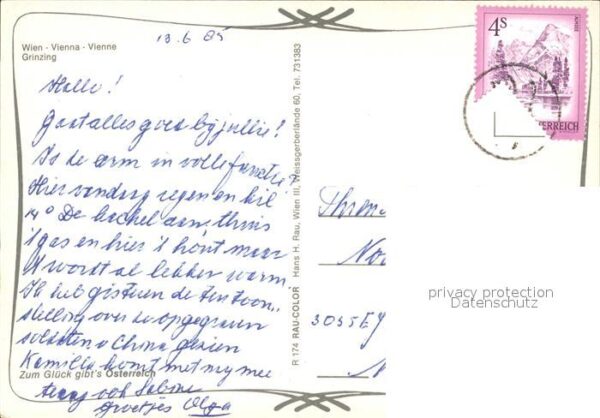 Wien - Vienna - Vienne
Grinzing
13.6 85
Hallo!
Gaat alles goed bij jullie?
Is de arm in volle functie?
Hier vandaag regen en kil
14° De kachel aan, thuis
't gas en hier 't hout maar
't wordt al lekker warm
Ik heb gisteren de tentoon„
stelling over de opgegraven
soldaten v China gezien
Kamilla komt met mij mee
terug ook Sabine
Groetjes Olga
Zum Glück gibt's Österreich
R 174 RAU-COLOR Hans H. Rau, Wien III, Weissgerberlände 60, Tel. 731383
4S
ALMSEE
ÖSTERREICH
3055EJ
privacy protection
Datenschutz